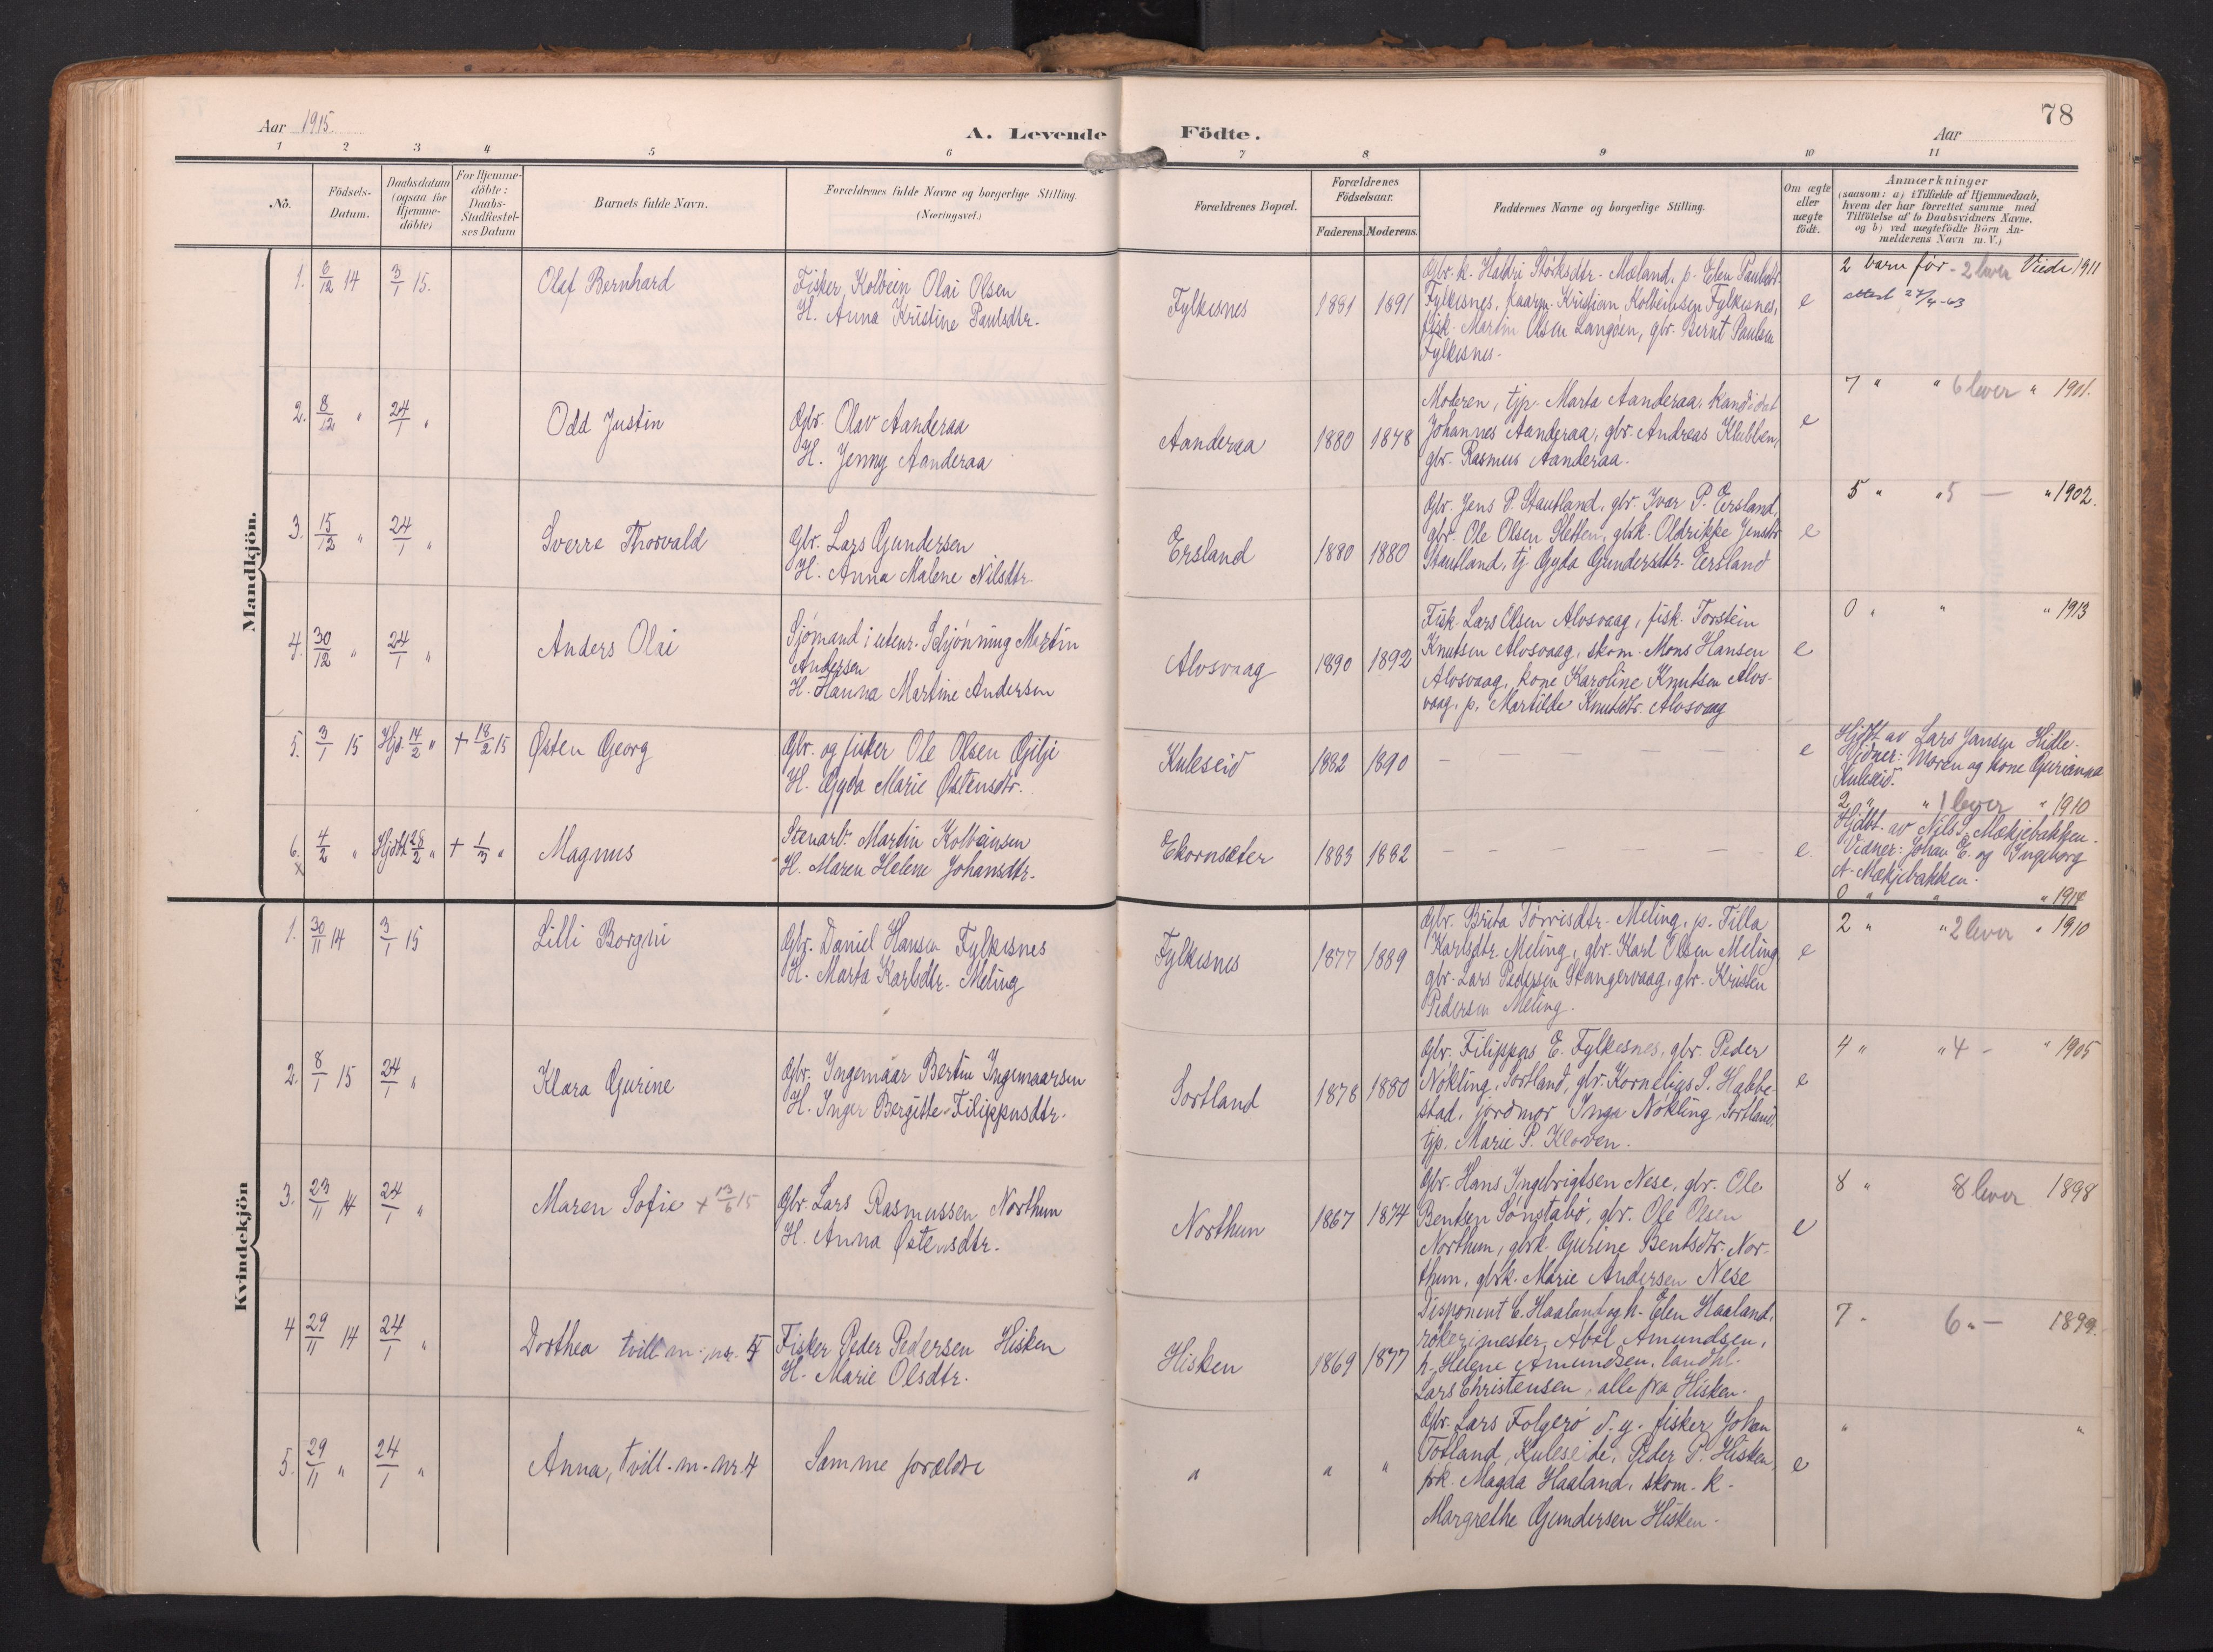 78
Aar 1915.
A. Levende Födte.
Aar
1 2 3 4 5 6 7 8 9 10 11
No.
Födsels-
Datum.
Daabsdatum
(ogsaa for
Hjemme-
döbte)
For Hjemme-
döbte:
Daabs-
Stadfæstel-
ses Datum
Barnets fulde Navn.
Forældrenes fulde Navne og borgerlige Stilling.
(Næringsvei.)
Forældrenes Bopæl.
Forældrenes
Födselsaar.
Faderens. Moderens.
Faddernes Navne og borgerlige Stilling.
Om ægte
eller
uægte
födt.
Anmærkninger
(saasom: a) i Tilfælde af Hjemmedaab,
hvem der har forrettet samme med
Tilföielse af to Daabsvidners Navne,
og b) ved uægtefödte Börn An-
melderens Navn m. V.)
Mandkjön.
1. 6/12 14 3/1 15. Olaf Bernhard
Fisker Kolbein Olai Olsen
H. Anna Kristine Paulsdtr.
Fylkesnes 1881 1891
Gbr. k. Haldri Störksdtr. Mæland, p. Elen Paulsdtr.
Fylkesnes, faarm. Kristian Kolbeinsen Fylkesnes,
fisk. Martin Olsen Langöen, gbr. Bernt Paulsen
Fylkesnes.
e
2 barn för - 2 lever Viede 1911
attest 27/4-63
2. 8/12 " 24/1 " Odd Justin
Gbr. Olav Aanderaa
H. Jenny Aanderaa
Aanderaa 1880 1878
Moderen, tjp. Marta Aanderaa, kandidat
Johannes Aanderaa, gbr. Andreas Klubben,
gbr. Rasmus Aanderaa.
e
7 " " 6 lever " 1901.
3. 15/12 " 24/1 " Sverre Thorvald
Gbr. Lars Gundersen
H. Anna Malene Nilsdtr.
Ersland 1880 1880
Gbr. Jens P. Stautland, gbr. Ivar P. Ersland,
gbr. Ole Olsen Sletten, gbrk. Oldrikke Jensdtr
Stautland, tj Gyda Gundersdtr. Ersland
e
5 " " 5 — " 1902.
4. 30/12 " 24/1 " Anders Olai
Sjömand i utenr. Schjönning Martin
Andersen
H. Hanna Martine Andersen
Alvsvaag 1890 1892
Fisk. Lars Olsen Alvsvaag, fisk. Torstein
Knutsen Alvsvaag, skom. Mons Hansen
Alvsvaag, kone Karoline Knutsen Alvs-
vaag, p. Martilde Knutsdtr. Alvsvaag
e
0 " " " 1913
5. 3/1 15 Hjd. 14/2 " + 18/2 15 Østen Georg
Gbr. og fisker Ole Olsen Gilje
H. Gyda Marie Østensdtr.
Kuleseid 1882 1890
— — — —
e
Hjdbt av Lars Jansen Hidle.
Vidner: Moren og kone Gurianna
Kuleseid.
2 " " 1 lever " 1910
6. x 4/2 " Hjdbt 28/2 " + 1/3 " Magnus
Stenarb. Martin Kolbeinsen
H. Maren Helene Johansdtr.
Ekornsæter 1883 1882
— — — —
e.
Hjdbt. av Nils S. Mækjebakken.
Vidner: Johan E. og Ingeborg
N. Mækjebakken.
0 " " " 1914
Kvindekjön
1. 30/11 14 3/1 15 Lilli Borgni
Gbr. Daniel Hansen Fylkesnes
H. Marta Karlsdtr. Meling
Fylkesnes 1877 1889
Gbr. Brita Törrisdtr. Meling, p. Tilla
Karlsdtr. Meling, gbr. Karl Olsen Meling
gbr. Lars Pedersen Stangervaag, gbr. Kristen
Pedersen Meling.
e
2 " " 2 lever " 1910
2. 8/1 15 24/1 " Klara Gurine
Gbr. Ingemaar Bertin Ingemaarsen
H. Inger Bergitte Filippusdtr.
Sortland 1878 1880
Gbr. Filippus E. Fylkesnes, gbr. Peder
Nökling, Sortland, gbr. Kornelius S. Habbe-
stad, jordmor Inga Nökling Sortland,
tjp. Marie P. Kloven.
e
4 " " 4 - " 1905
3. 23/11 14 24/1 " Maren Sofie + 13/6 15
Gbr. Lars Rasmussen Northun
H. Anna Østensdtr.
Northun 1867 1874
Gbr. Hans Ingebrigtsen Nese, gbr. Ole
Bentsen Sönstabö, gbr. Ole Olsen
Northun, gbrk. Gurine Bentsdtr. Nor-
thun, gbrk. Marie Andersen Nese
e
8 " 8 lever 1898
4 29/11 14 24/1 " Dorthea tvill. m. nr. 5
Fisker Peder Pedersen Hisken
H. Marie Olsdtr.
Hisken 1869 1877
Disponent C. Haaland og h. Elen Haaland,
rökerimester Abel Amundsen,
h. Helene Amundsen, landhl.
Lars Christensen, alle fra Hisken.
7 " 6 " — 1899.
5. 29/11 " 24/1 " Anna, tvill. m. nr. 4
Samme forældre
" " "
Gbr. Lars Folgerö d. y. fisker Johan
Totland, Kuleseide, Peder P. Hisken,
frk. Magda Haaland, skom. k.
Margrethe Gundersen Hisken.
e
" "